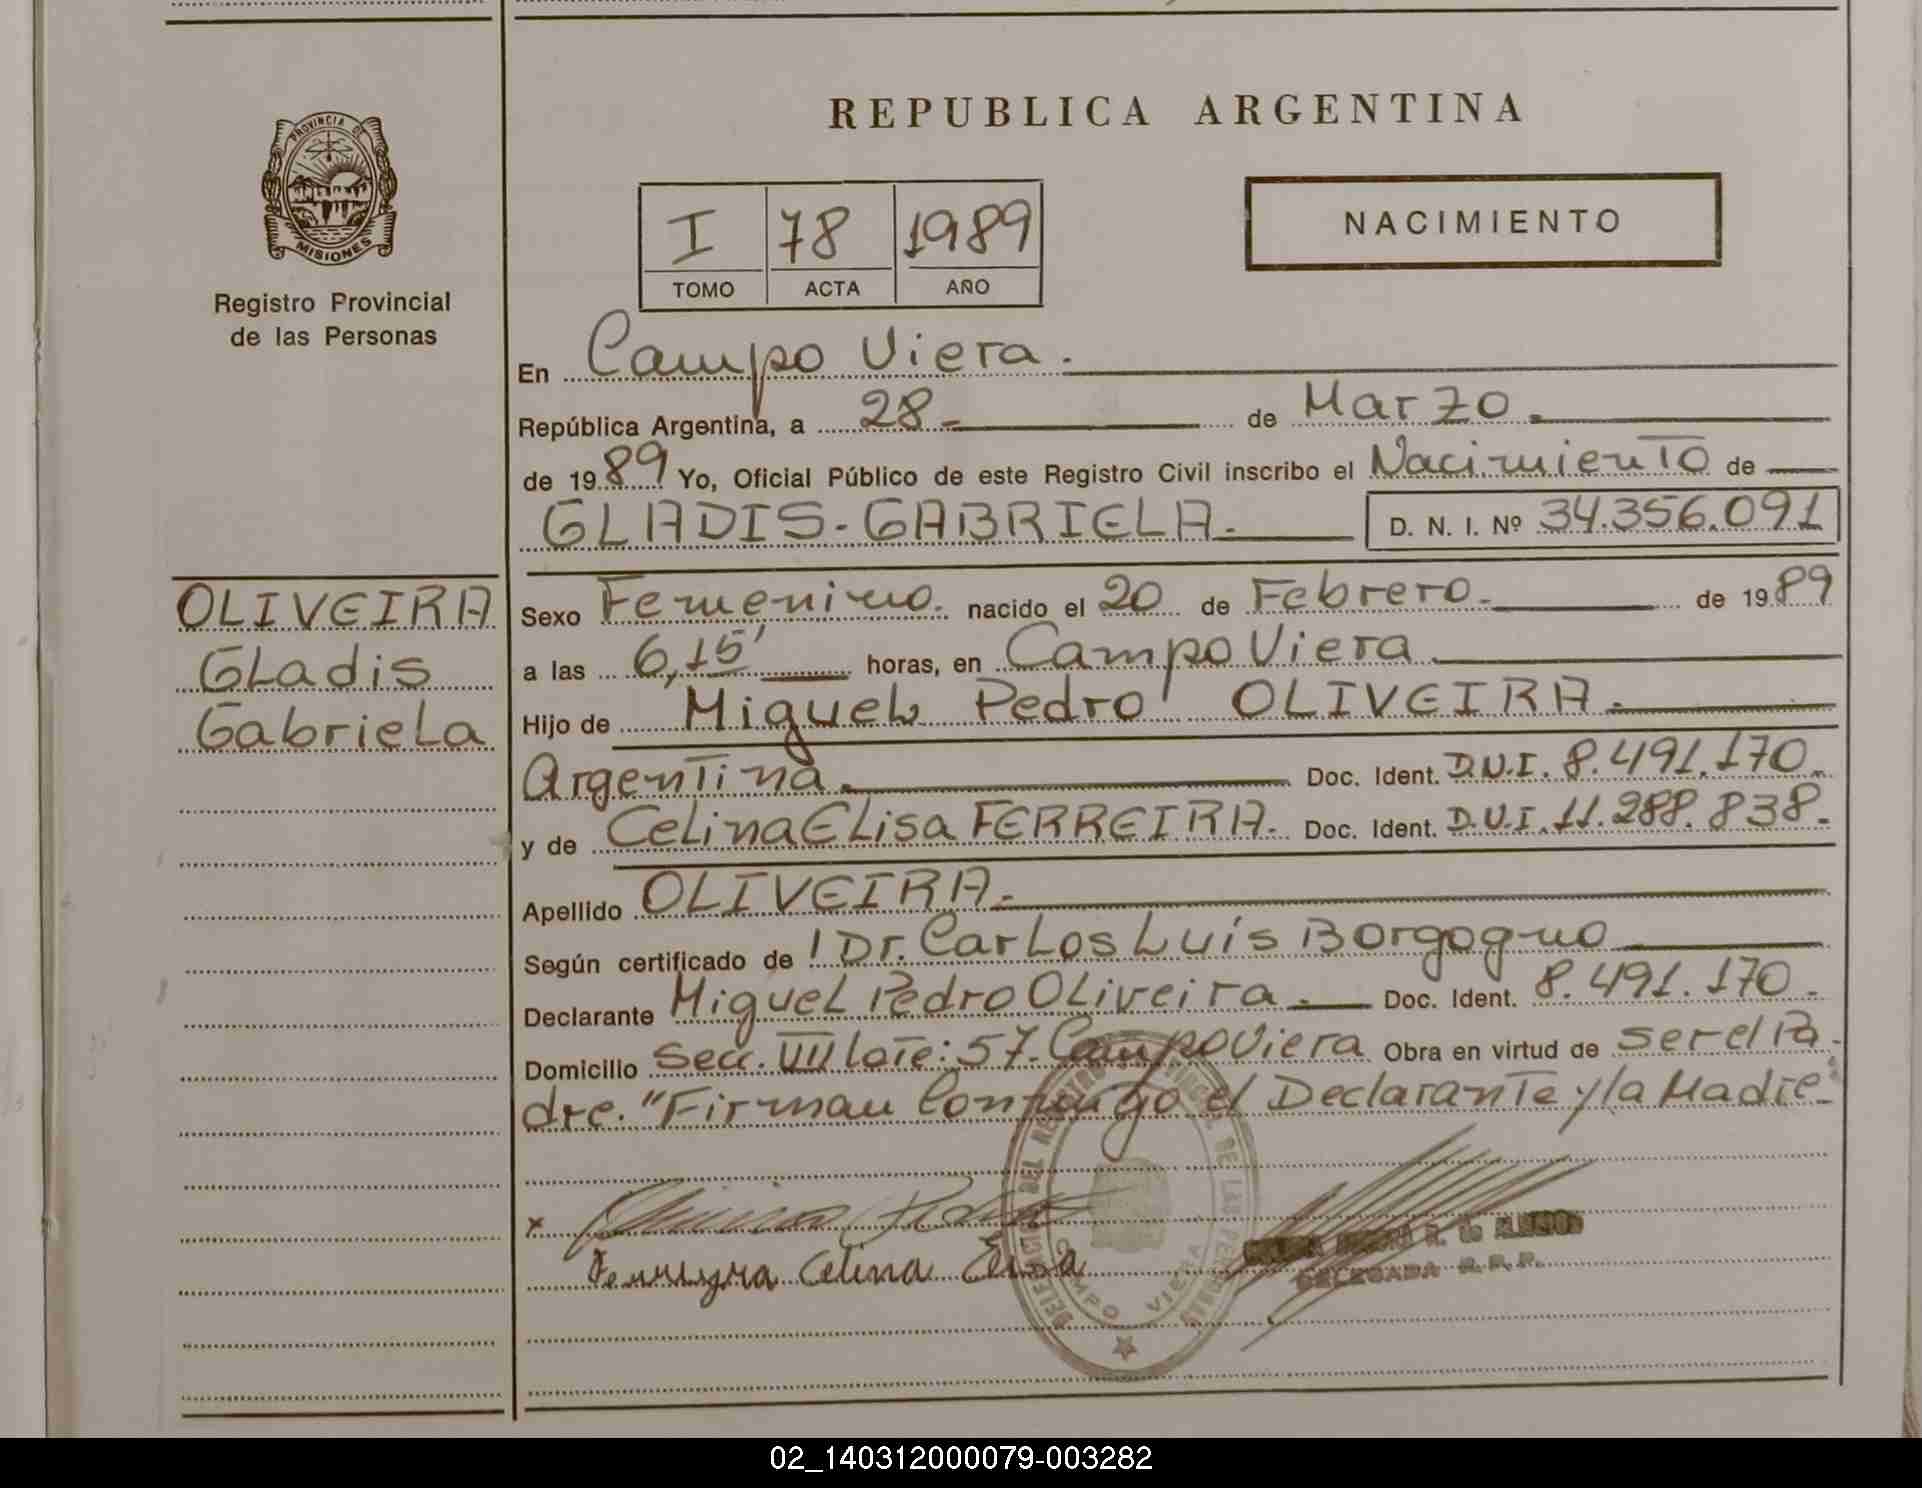 REPUBLICA ARGENTINA
PROVINCIA DE
MISIONES
Registro Provincial
de las Personas
I 78 1989
TOMO ACTA AÑO
NACIMIENTO
En Campo Viera.
República Argentina, a 28 de Marzo.
de 1989 Yo, Oficial Público de este Registro Civil inscribo el Nacimiento de
GLADIS-GABRIELA. D. N. I. Nº 34.356.091
OLIVEIRA
Gladis
Gabriela
Sexo Femenino. nacido el 20 de Febrero. de 1989
a las 6,15' horas, en Campo Viera
Hijo de Miguel Pedro OLIVEIRA.
Argentina. Doc. Ident. D.N.I. 8.491.170
y de Celina Elisa FERREIRA. Doc. Ident. D.N.I. 11.288.838.
Apellido OLIVEIRA.
Según certificado de l Dr. Carlos Luís Borgogno
Declarante Miguel Pedro Oliveira. Doc. Ident. 8.491.170.
Domicilio Secc. VIII lote: 57. Campo Viera Obra en virtud de ser el Pa
dre. "Firman Conjunto el Declarante y la Madre"
x
Ferreyra Celina Elisa
DEL REGISTRO PROVINCIAL DE LAS PERSONAS
CAMPO VIERA
DELEGADA R.P.P.
02_140312000079-003282